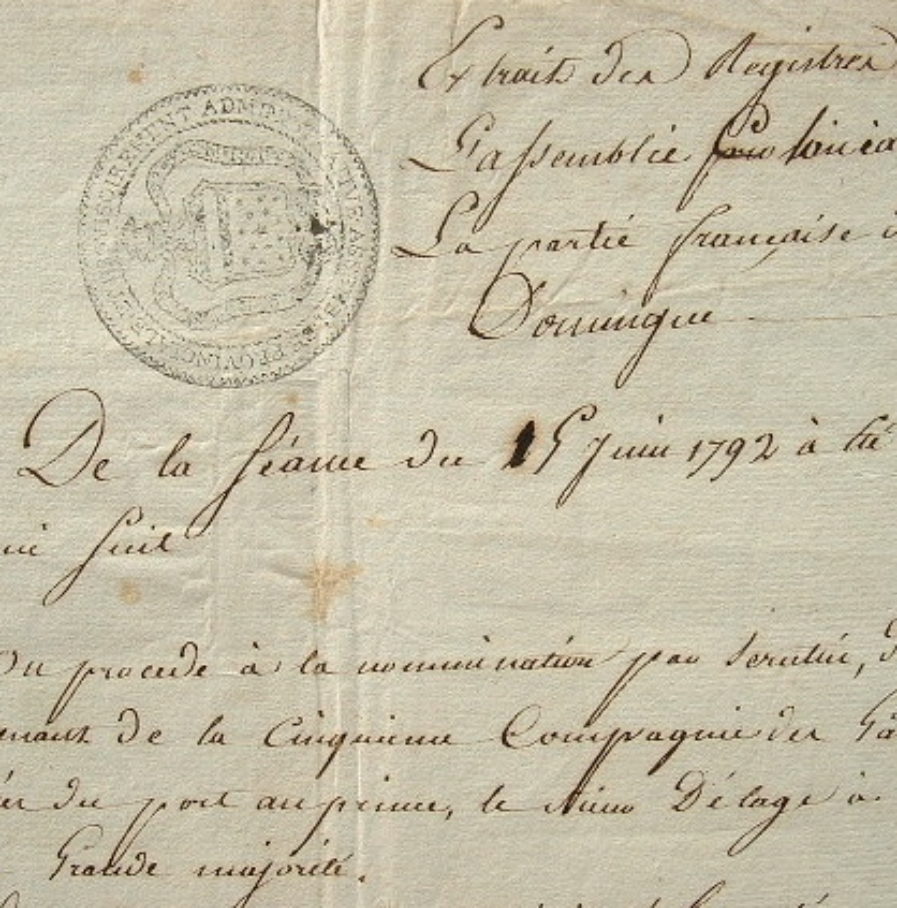 Extrait des Registres
L'assemblée Provincia
La partié française d
Domingue
De la Séance du 15 Juin 1792 à été
ui Suit
On procede à la nomination par Scrutin, d
enant de la Cinquieme Compagnie des Ga
du port au prince, le Sieur Délage à
Grande majorité.